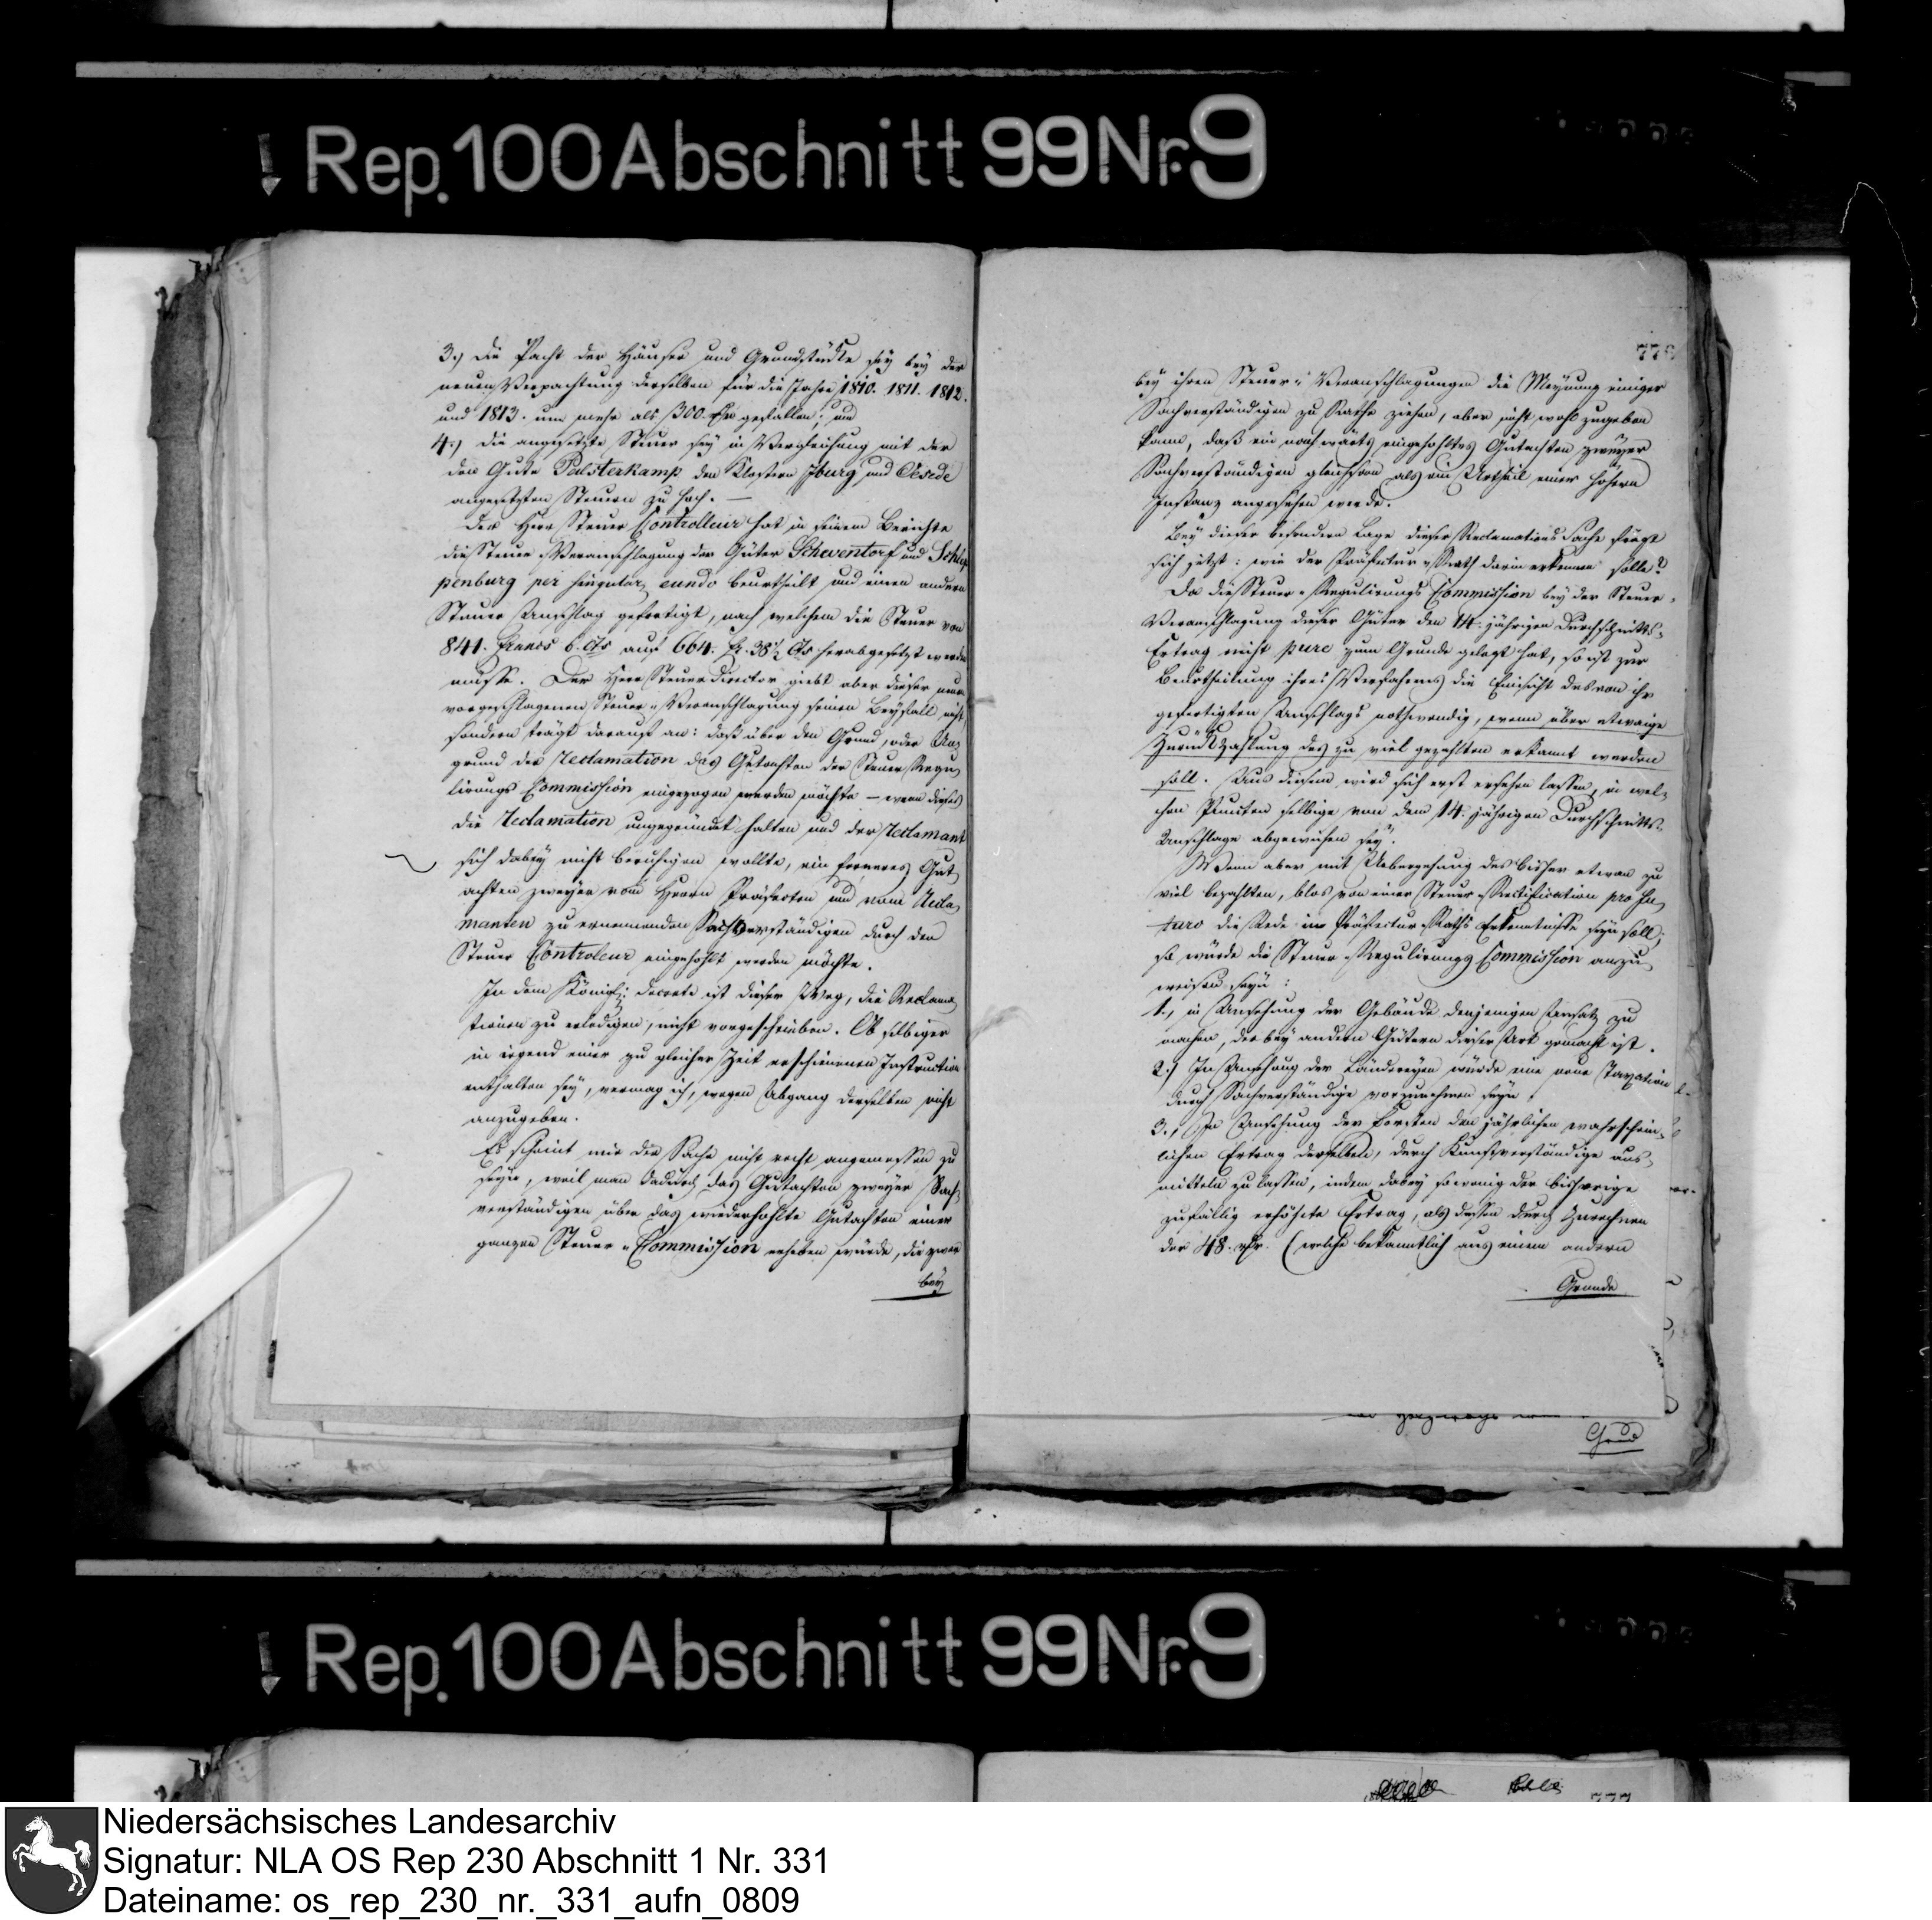 Rep. 100 Abschnitt 99 Nr. 9
3.) die Pacht der Häuser und Grundstücke sey bey der
neuen Verpachtung derselben für die Jahre 1810. 1811. 1812.
und 1813. um mehr als 300. gefallen; und
4.) die angesetzte Steuer sey in Vergleichung mit der
den Gute Palsterkamp den Klöstern Jburg und Oesede
angesetzten Steuern zu hoch. —
Der Herr Steuer Controlleur hat in seinem Berichte
die Steuer-Veranschlagung der Güter Scheventorf und Schlep
penburg per singula eundo beurtheilt und einen andern
Steuer Anschlag gefertigt, nach welchem die Steuer von
841. Francs 6. Cts auf 664. fr. 38½ Cts herabgesetzt werden
müsse. Der Herr Steuerdirector giebt aber dieser neuen
vorgeschlagenen Steuer-Veranschlagung seinen Beyfall nicht,
sondern trägt darauf an: daß über den Grund, oder Un-
grund der Reclamation das Gutachten der Steuer Regu-
lirungs Commission eingezogen werden möchte — wenn diese
die Reclamation ungegründet halten und der Reclamant
sich dabey nicht beruhigen wollte, ein ferneres Gut
achten zweyer vom Herrn Präfecten und vom Recla-
manten zu ernennenden Sachverständigen durch den
Steuer Controleur eingeholt werden möchte.
In dem Königl: Decrete ist dieser Weg, die Reclama-
tionen zu erledigen, nicht vorgeschrieben. Ob selbiger
in irgend einer zu gleicher Zeit erschienenen Instruction
enthalten sey, vermag ich, wegen Abgang derselben nicht
anzugeben.
Es scheint mir der Sache nicht recht angemessen zu
seyn, weil man dadurch das Gutachten zweyer Sach-
verständigen über das wiederholte Gutachten einer
ganzen Steuer-Commission erheben würde, die zwar
bey
776
bey ihren Steuer-Veranschlagungen die Meynung einiger
Sachverständigen zu Rathe ziehen, aber nicht wohl zugeben
kann, daß ein nachwärts eingeholtes Gutachten zweyer
Sachverständigen gleichsam als ein Urtheil einer höhern
Instanz angesehen werde.
Bey dieser besondern Lage dieser Reclamations Sache frägt
sich jetzt: wie der Präfectur-Rath darin erkennen solle?
Da die Steuer-Regulirungs Commission bey der Steuer-
Veranschlagung dieser Güter den 14. jährigen Durchschnitts-
Ertrag nicht pure zum Grunde gelegt hat, so ist zur
Beurtheilung ihres Verfahrens die Einsicht des von ihr
gefertigten Anschlags nothwendig, wenn über etwaige
Zurückzahlung des zu viel gezahlten erkannt werden
soll. Aus diesem wird sich erst ersehen lassen, in wel-
chen Puncten selbige von dem 14. jährigen Durchschnitts-
Anschlage abgewichen sey.
Wenn aber mit Uebergehung des bisher etwan zu
viel bezahlten, blos von einer Steuer-Rectification pro fu-
turo die Rede im Präfectur-Raths Erkenntnisse seyn soll;
so würde die Steuer-Regulirungs Commission anzu-
weisen seyn:
1., in Ansehung der Gebäude denjenigen Ansatz zu
machen, der bey andern Gütern dieser Art gemacht ist.
2.) In Ansehung der Ländereyen würde eine neue Taxation
durch Sachverständige vorzunehmen seyn.
3., In Ansehung der Forsten den jährlichen wahrschein-
lichen Ertrag derselben, durch Kunstverständige aus-
mitteln zu lassen, indem dabey so wenig der bisherige
zufällig erhöhete Ertrag, als dessen durch Zurechnen
der 48. (welche bekanntlich aus einem andern
Grunde
Rep. 100 Abschnitt 99 Nr. 9
777
Niedersächsisches Landesarchiv
Signatur: NLA OS Rep 230 Abschnitt 1 Nr. 331
Dateiname: os_rep_230_nr._331_aufn_0809